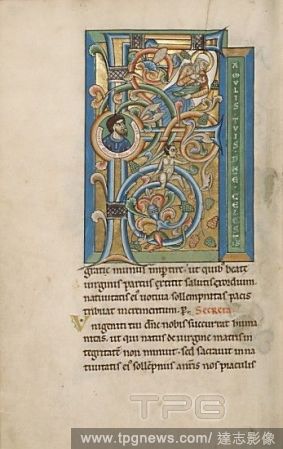 F
AMULIS TUIS DNE CELESTIS
gratie munus impertire. ut quib; beate
virginis partus extitit salutis exordium
nativitatis ei' votiva sollempnitas pacis
tribuat incrementum. p. Secreta
Unigeniti tui dne nobis succurrat huma
nitas. ut qui natus de virgine matris in
tegritatē non minuit. sed sacravit in na
tivitatis ei' nos piaculis
TPG
www.tpgnews.com/達志影像